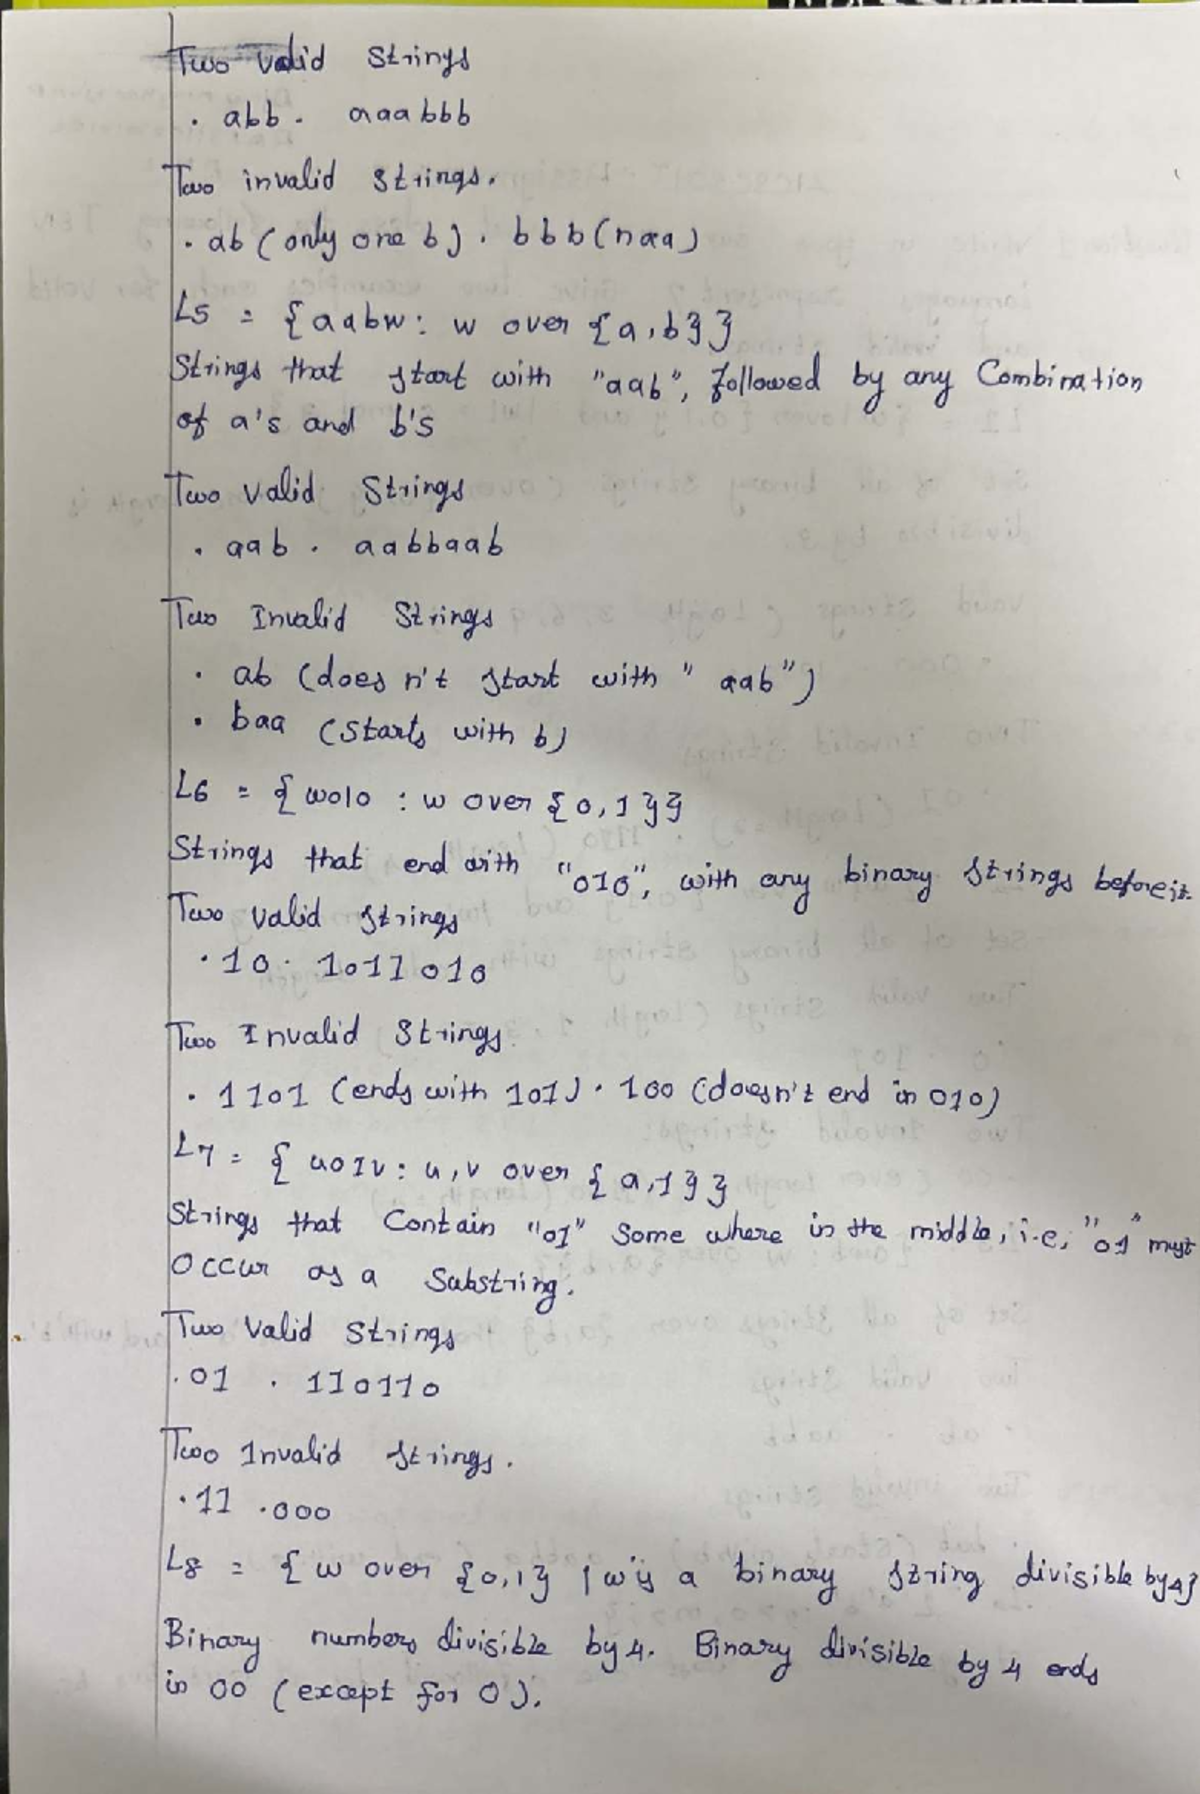 Two Valid Strings
. abb . aaabbb
Two invalid strings.
. ab (only one b) . bbb (no a)
L5 = {aabw : w over {a,b}}
Strings that start with "aab", followed by any Combination
of a's and b's
Two Valid Strings
. aab . aabbaab
Two Invalid Strings
. ab (does n't start with "aab")
. baa (starts with b)
L6 = {w010 : w over {0,1}}
Strings that end with "010", with any binary strings before it.
Two Valid strings
. 10 . 1011010
Two Invalid Strings.
. 1101 (ends with 101) . 100 (doesn't end in 010)
L7 = {u01v : u,v over {a,1}}
Strings that Contain "01" Some where in the middle, i.e, "01" must
Occur as a Substring.
Two Valid Strings
. 01 . 110110
Two Invalid strings.
. 11 . 000
L8 = {w over {0,1} | w is a binary string divisible by 4}
Binary numbers divisible by 4. Binary divisible by 4 ends
in 00 (except for 0).